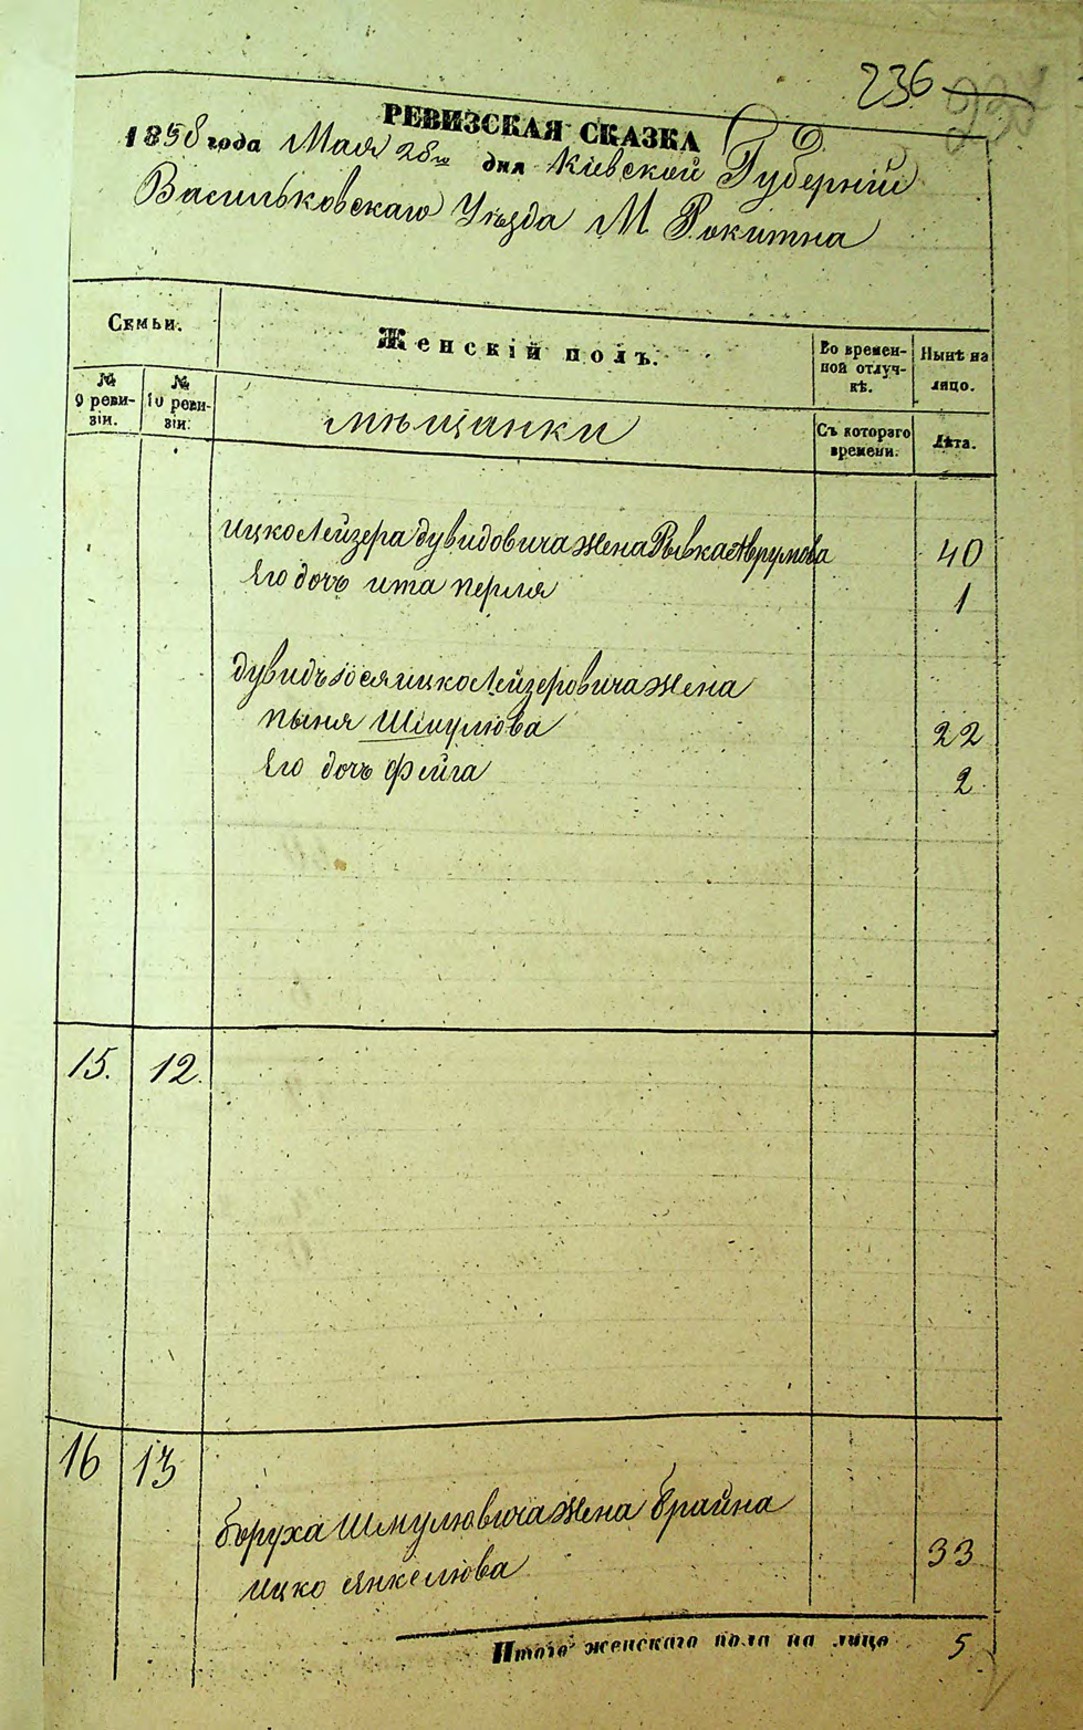 236
РЕВИЗСКАЯ СКАЗКА
1858 года Мая 28го дня Кіевской Губерніи
Васильковскаго Уѣзда М Рокитна
Семьи.
Женскій полъ.
Во времен-
ной отлуч-
кѣ.
Нынѣ на
лицо.
№
9 реви-
зіи.
№
10 реви-
зіи.
мѣщанки
Съ котораго
времени.
Лѣта.
ицко Лейзера дувидовича жена Рывка Аврумова 40
Его дочь ита перля 1
дувидъ іося ицко Лейзеровича жена
пыня Шмулюва 22
Его дочь фейга 2
15. 12.
16 13
боруха Шмулювича жена брайна
ицко Янкелюва 33
Итого женскаго пола на лицо 5